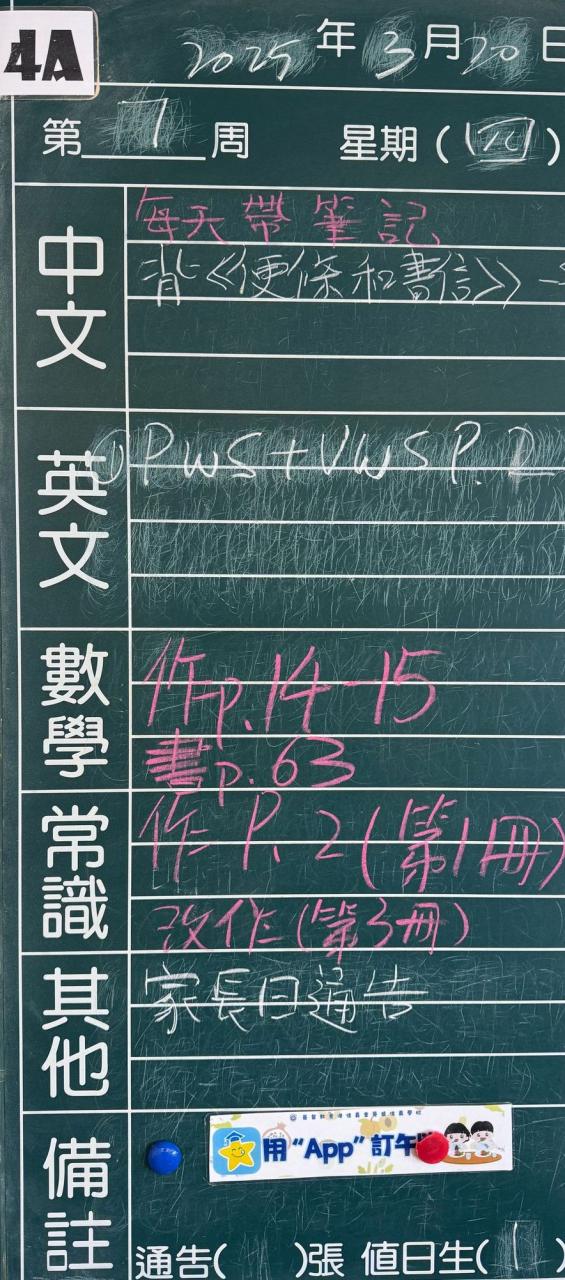 4A
2025年3月20日
第7周 星期(四)
中文
每天帶筆記
背《便條和書信》
英文
① PWS + VWS P. 2
數學
作p.14-15
書p.63
常識
作 P. 2 (第1冊)
改作(第3冊)
其他
家長日通告
備註
用“App”訂午
通告( )張 值日生(1)